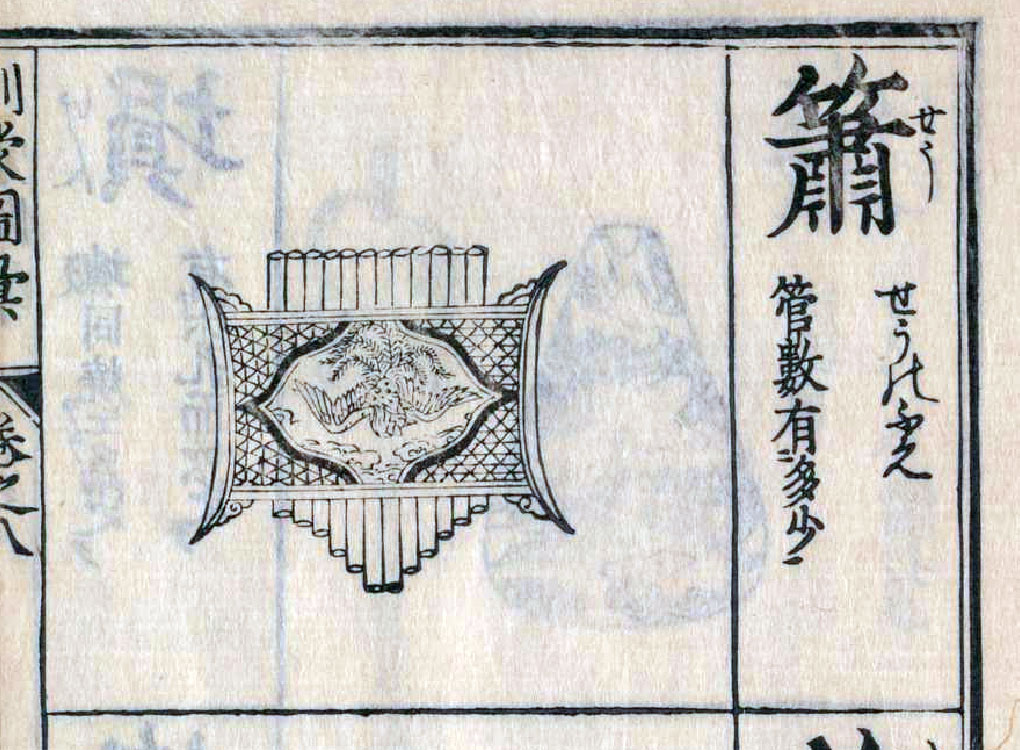 簫
せう
せうのふえ
管數有多少
訓蒙圖彙
卷之八